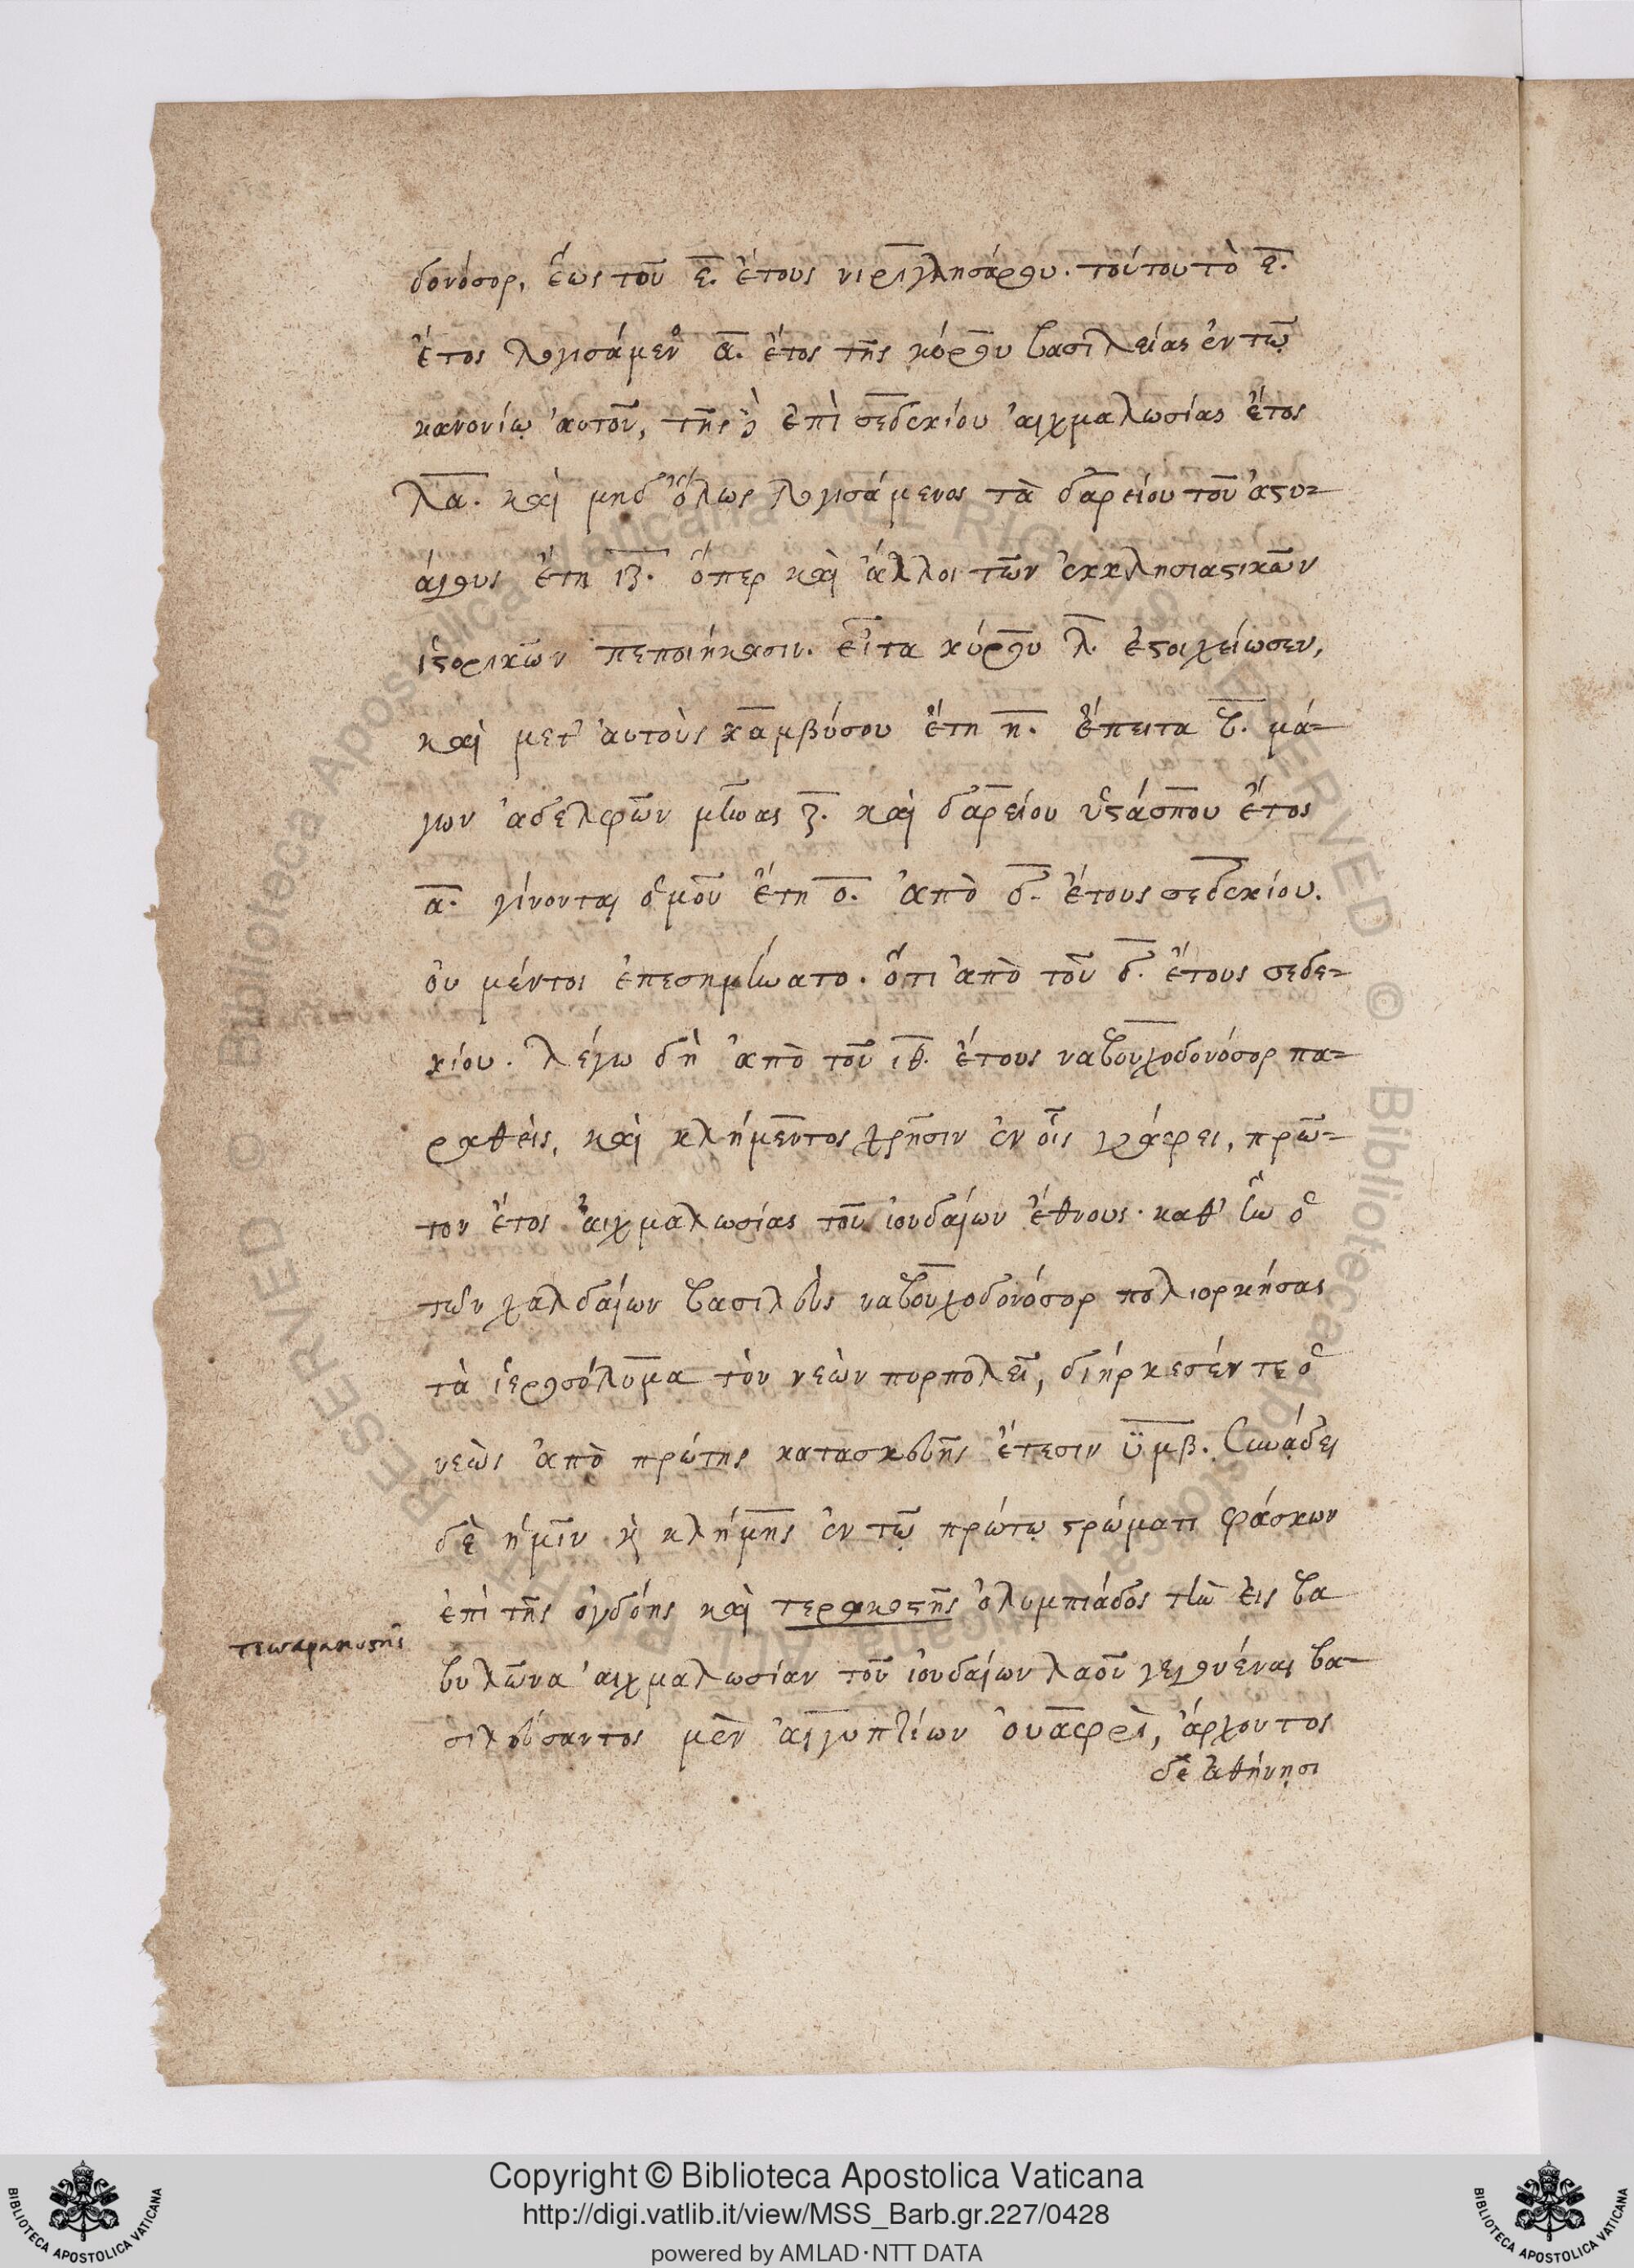 δονόσορ, ἕως τοῦ ε̅. ἔτους νιριγλησάρου. τούτου τὸ ε̅.
ἔτος λογισάμενος α̅. ἔτος τῆς κύρου βασιλείας ἐν τῶ
κανονίω αὐτοῦ, τῆς δὲ ἐπὶ σεδεκίου αἰχμαλωσίας ἔτος
λα̅. καὶ μηδ' ὅλως λογισάμενος τὰ δαρείου τοῦ ἀστυ-
άγους ἔτη ιζ̅. ὅπερ καὶ ἄλλοι τῶν ἐκκλησιαστικῶν
ἱστορικῶν πεποιήκασιν. εἶτα κύρου λ̅. ἐστοιχείωσεν,
καὶ μετ' αὐτοὺς καμβύσου ἔτη η̅. ἔπειτα β̅. μά-
γων ἀδελφῶν μῆνας ζ̅. καὶ δαρείου ὑστάσπου ἔτος
α̅. γίνονται ὁμοῦ ἔτη ο̅. ἀπὸ δ̅. ἔτους σεδεκίου.
οὐ μέντοι ἐπεσημήνατο. ὅτι ἀπὸ τοῦ δ̅. ἔτους σεδε-
κίου. λέγω δὴ ἀπὸ τοῦ ιθ̅. ἔτους ναβουχοδονόσορ πα-
ραθεὶς, καὶ κλήμεντος χρῆσιν ἐν οἷς γράφει, πρῶ-
τον ἔτος αἰχμαλωσίας τοῦ ἰουδαίων ἔθνους. καθ' ἣν ὁ
τῶν χαλδαίων βασιλεὺς ναβουχοδονόσορ πολιορκήσας
τὰ ἱεροσόλυμα τὸν νεὼν πυρπολεῖ, διήρκεσέν τε ὁ
νεὼς ἀπὸ πρώτης κατασκευῆς ἔτεσιν υμβ̅. συνάδει
δὲ ἡμῖν κ̀ κλήμης ἐν τῶ πρώτω στρώματι φάσκων
ἐπὶ τῆς ὀγδόης καὶ τερακοστῆς ὀλυμπιάδος τὴν εἰς βα
τεσσαρακοστῆς
βυλῶνα αἰχμαλωσίαν τοῦ ἰουδαίων λαοῦ γεγονέναι βα-
σιλεύσαντος μὲν αἰγυπτίων οὐαφρὶ, ἄρχοντος
δὲ ἀθήνησι
Copyright © Biblioteca Apostolica Vaticana
http://digi.vatlib.it/view/MSS_Barb.gr.227/0428
powered by AMLAD·NTT DATA
BIBLIOTECA APOSTOLICA VATICANA
BIBLIOTECA APOSTOLICA VATICANA